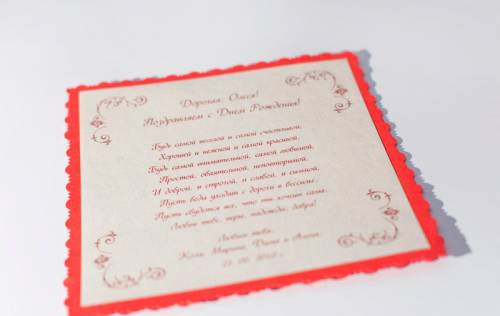 Дорогая, Олеся!
Поздравляем с Днем Рождения!
Будь самой веселой и самой счастливой,
Хорошей и нежной и самой красивой,
Будь самой внимательной, самой любимой,
Простой, обаятельной, неповторимой,
И доброй, и строгой, и слабой, и сильной,
Пусть беды уходят с дороги в бессилье,
Пусть сбудется все, что ты хочешь сама,
Любви тебе, веры, надежды, добра!
Любим тебя,
Коля, Марина, Даша и